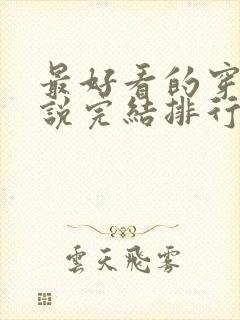 最好看的穿
說完結排行
雲天飛霧